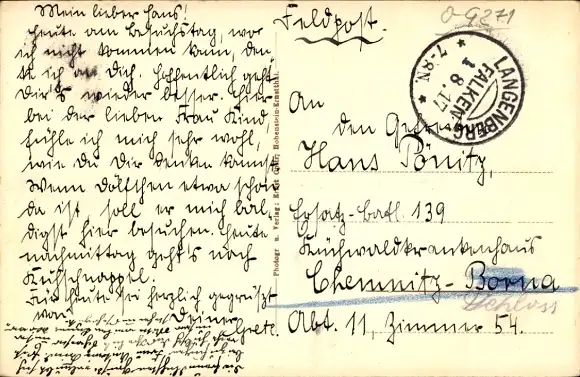 Mein lieber Hans!
Heute am Besuchstag, wo
ich nicht kommen kann, den-
ke ich an Dich. Hoffentlich geht
Dir's wieder besser. Hier
bei der lieben Frau Kind
fühle ich mich sehr wohl,
wie Du Dir denken kannst.
Wenn Dölfthen etwa schon
da ist soll er mich bal-
digst hier besuchen. Heute
nachmittag geht's nach
Kuhschnappel.
Für heute sei herzlich gegrüßt
von Deiner
Grete.
Photogr. u. Verlag: Ernst Hohenstein-Ernstthal.
Feldpost.
O-9271
LANGENBERG
FALKEN
1.8.17
7-8N
An
den Gefreiten
Hans Pönitz,
Ersatz-Batl. 139
Küchwaldkrankenhaus
Chemnitz-Borna
Schloss
Abt. 11, Zimmer 54.